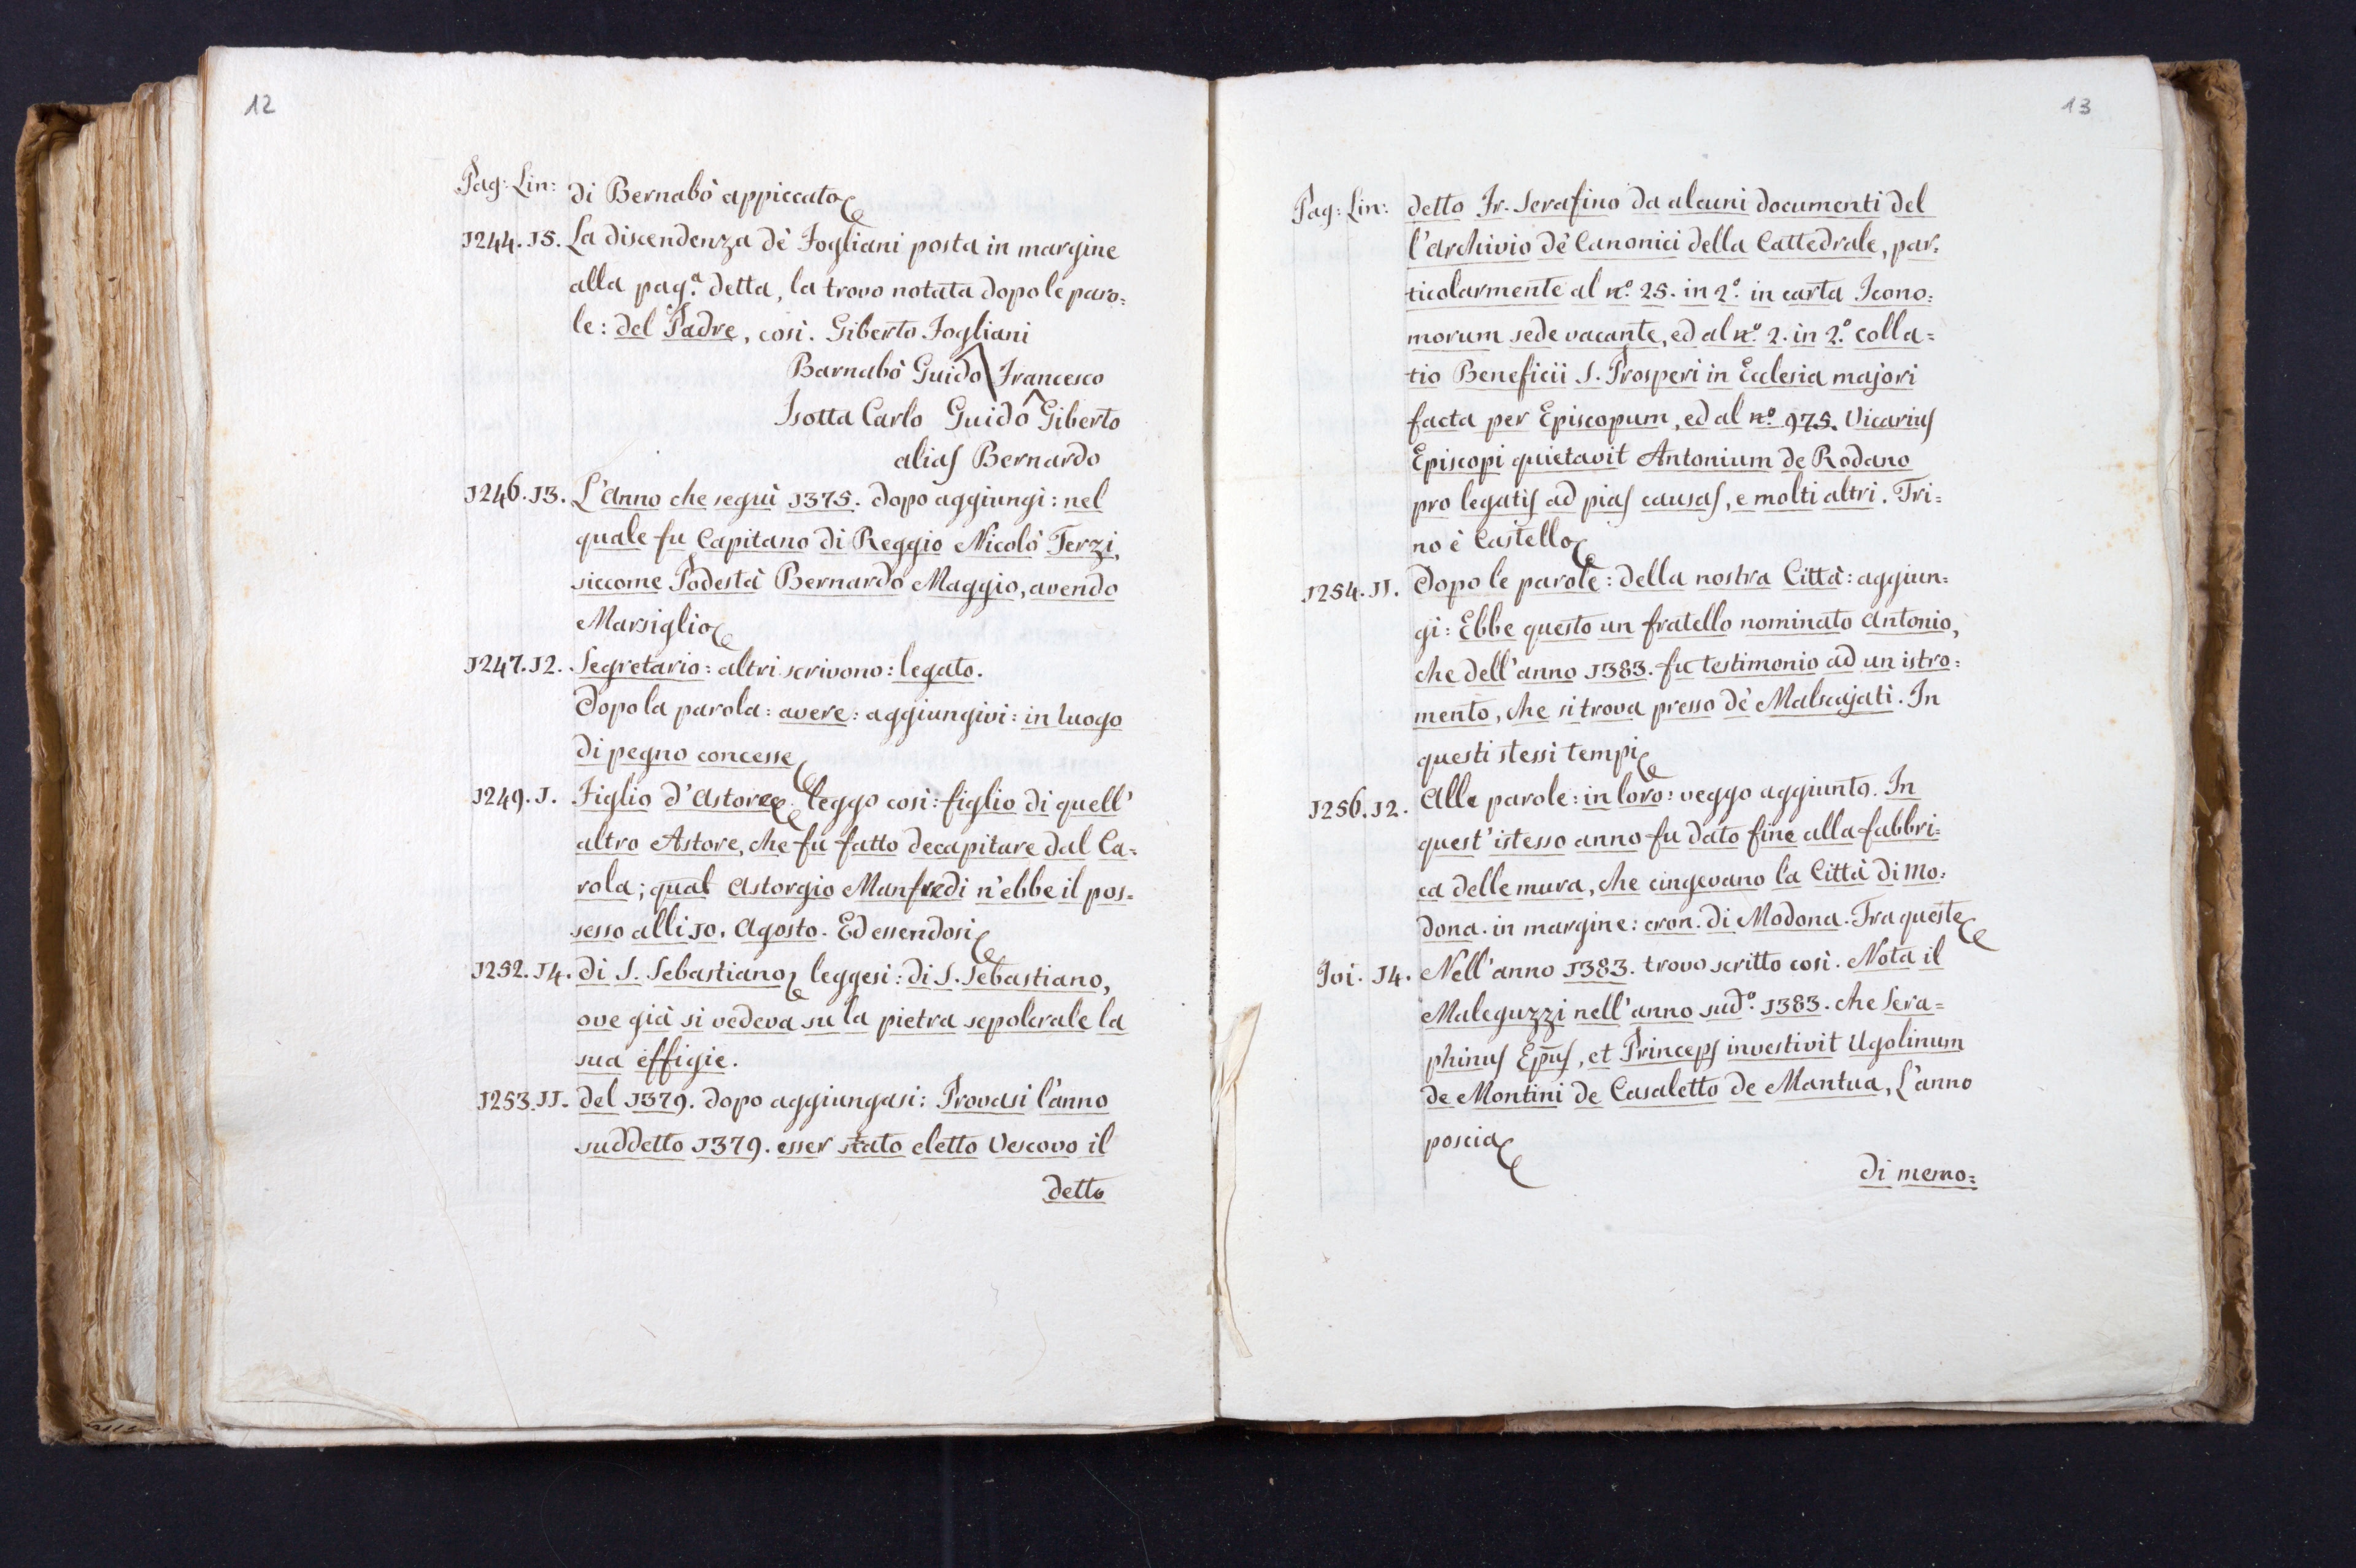 12
Pag: Lin: di Bernabò appiccato
1244. 15. La discendenza dè Fogliani posta in margine
alla pag.ª detta, la trovo notata dopo le paro=
le: del Padre, così. Giberto Fogliani
Barnabò Guido Francesco
Isotta Carlo Guido Giberto
alias Bernardo
1246. 13. L'Anno che seguì 1375. dopo aggiungi: nel
quale fu Capitano di Reggio Nicolò Terzi,
siccome Podestà Bernardo Maggio, avendo
Marsiglio
1247. 12. Segretario: altri scrivono: legato.
Dopo la parola: avere: aggiungivi: in luogo
di pegno concesse
1249. 1. Figlio d'Astore leggo così: figlio di quell'
altro Astore, che fu fatto decapitare dal Ca=
rola; qual Astorgio Manfredi n'ebbe il pos=
sesso alli 10. Agosto. Ed essendosi
1252. 14. di S. Sebastiano leggesi: di S. Sebastiano,
ove già si vedeva su la pietra sepolcrale la
sua effigie.
1253. 11. del 1379. dopo aggiungasi: Provasi l'anno
suddetto 1379. esser stato eletto Vescovo il
detto
13
Pag: Lin: detto Fr. Serafino da alcuni documenti del
l'Archivio dè Canonici della Cattedrale, par=
ticolarmente al n.º 25. in 2.º in carta Icono=
morum sede vacante, ed al n.º 2. in 2.º colla=
tio Beneficii S. Prosperi in Eclesia majori
facta per Episcopum, ed al n.º 975. Vicarius
Episcopi quietavit Antonium de Rodano
pro legatis ad pias causas, e molti altri. Tri=
no è Castello
1254. 11. Dopo le parole: della nostra Città: aggiun=
gi: Ebbe questo un fratello nominato Antonio,
che dell'anno 1383. fu testimonio ad un istro=
mento, che si trova presso dè Malscajati. In
questi stessi tempi
1256. 12. Alle parole: in loro: veggo aggiunto. In
quest'istesso anno fu dato fine alla fabbri=
ca delle mura, che cingevano la Città di Mo=
dona. in margine: cron. di Modona. Tra queste
Ivi. 14. Nell'anno 1383. trovo scritto così. Nota il
Maleguzzi nell'anno sud.º 1383. che Sera=
phinus Ep̄us, et Princeps investivit Ugolinum
de Montini de Casaletto de Mantua, L'anno
poscia
di memo=